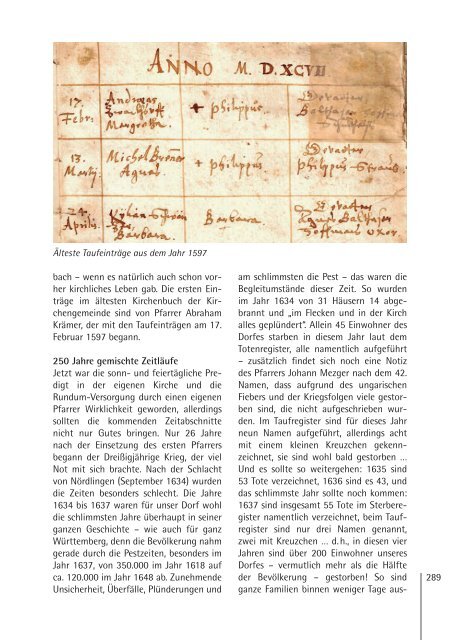 ANNO M. D. XCVII
17. Andreas
Febr:
Margretha. + Philippus. Gevatter
Balthasar
13. Michel Gevatter
Martij Agnes. + Philippus Philippus Strauß.
24. Kylian Gevatter
Aprilis Barbara. Barbara. Agnes Balthasar
Hoffmans uxor.
Älteste Taufeinträge aus dem Jahr 1597
bach – wenn es natürlich auch schon vor-
her kirchliches Leben gab. Die ersten Ein-
träge im ältesten Kirchenbuch der Kir-
chengemeinde sind von Pfarrer Abraham
Krämer, der mit den Taufeinträgen am 17.
Februar 1597 begann.
250 Jahre gemischte Zeitläufe
Jetzt war die sonn- und feiertägliche Pre-
digt in der eigenen Kirche und die
Rundum-Versorgung durch einen eigenen
Pfarrer Wirklichkeit geworden, allerdings
sollten die kommenden Zeitabschnitte
nicht nur Gutes bringen. Nur 26 Jahre
nach der Einsetzung des ersten Pfarrers
begann der Dreißigjährige Krieg, der viel
Not mit sich brachte. Nach der Schlacht
von Nördlingen (September 1634) wurden
die Zeiten besonders schlecht. Die Jahre
1634 bis 1637 waren für unser Dorf wohl
die schlimmsten Jahre überhaupt in seiner
ganzen Geschichte – wie auch für ganz
Württemberg, denn die Bevölkerung nahm
gerade durch die Pestzeiten, besonders im
Jahr 1637, von 350.000 im Jahr 1618 auf
ca. 120.000 im Jahr 1648 ab. Zunehmende
Unsicherheit, Überfälle, Plünderungen und
am schlimmsten die Pest – das waren die
Begleitumstände dieser Zeit. So wurden
im Jahr 1634 von 31 Häusern 14 abge-
brannt und „im Flecken und in der Kirch
alles geplündert“. Allein 45 Einwohner des
Dorfes starben in diesem Jahr laut dem
Totenregister, alle namentlich aufgeführt
– zusätzlich findet sich noch eine Notiz
des Pfarrers Johann Mezger nach dem 42.
Namen, dass aufgrund des ungarischen
Fiebers und der Kriegsfolgen viele gestor-
ben sind, die nicht aufgeschrieben wur-
den. Im Taufregister sind für dieses Jahr
neun Namen aufgeführt, allerdings acht
mit einem kleinen Kreuzchen gekenn-
zeichnet, sie sind wohl bald gestorben ...
Und es sollte so weitergehen: 1635 sind
53 Tote verzeichnet, 1636 sind es 43, und
das schlimmste Jahr sollte noch kommen:
1637 sind insgesamt 55 Tote im Sterbere-
gister namentlich verzeichnet, beim Tauf-
register sind nur drei Namen genannt,
zwei mit Kreuzchen ... d. h., in diesen vier
Jahren sind über 200 Einwohner unseres
Dorfes – vermutlich mehr als die Hälfte
der Bevölkerung – gestorben! So sind
ganze Familien binnen weniger Tage aus-
289